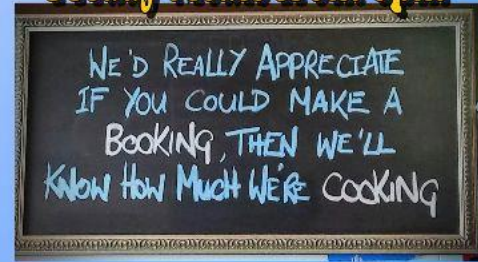 WE'D REALLY APPRECIATE
IF YOU COULD MAKE A
BOOKING, THEN WE'LL
KNOW HOW MUCH WE'RE COOKING